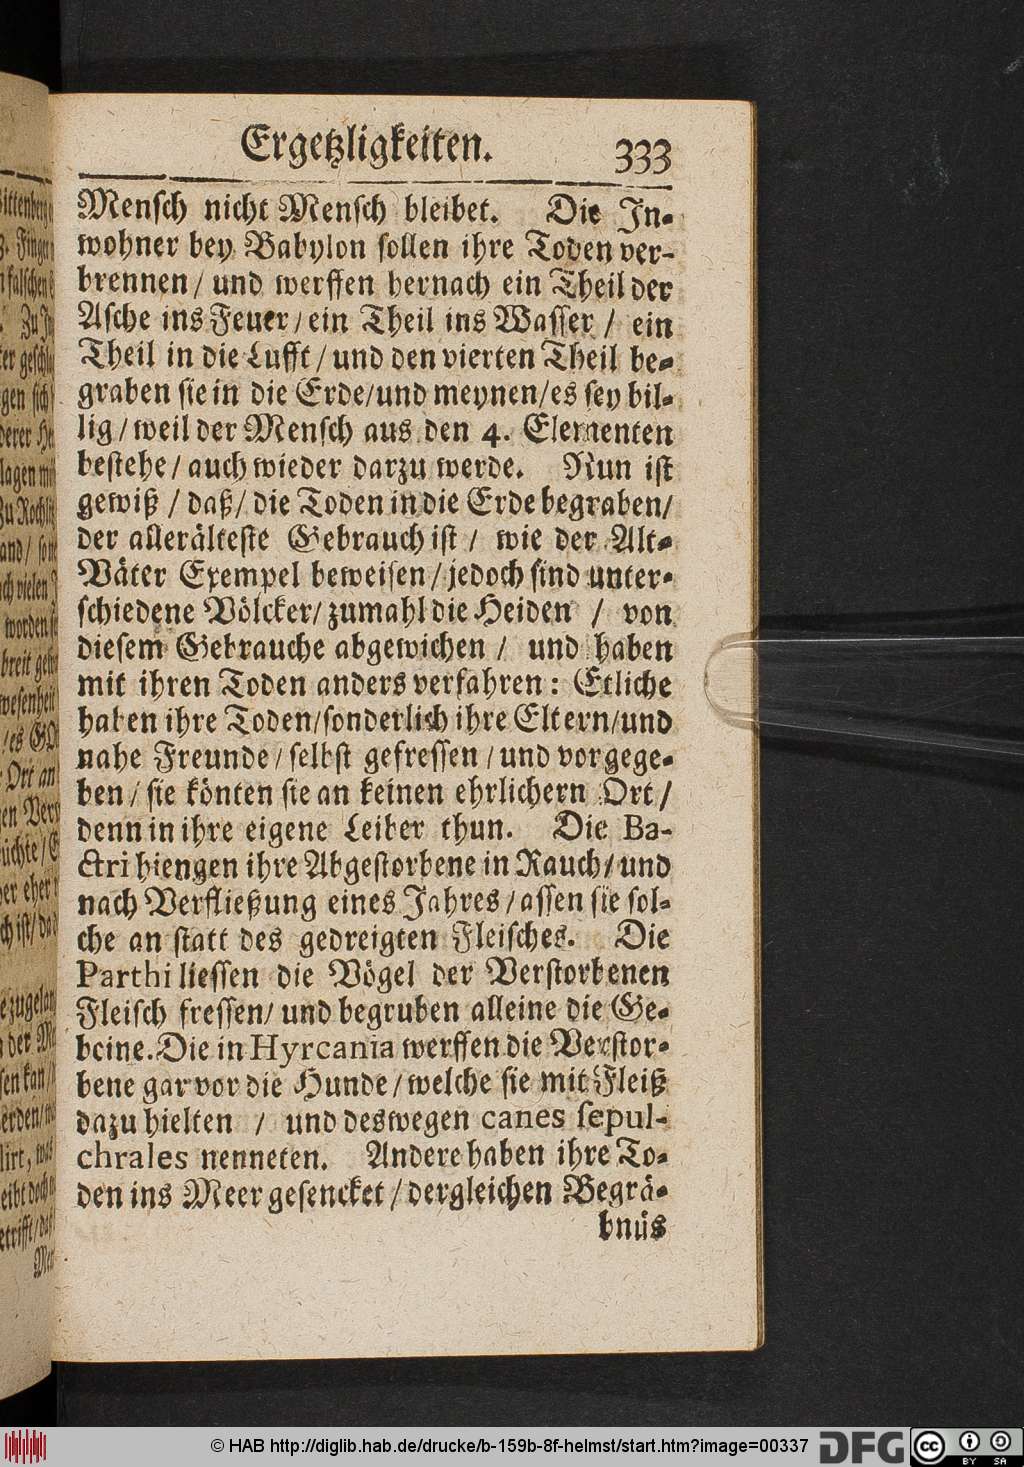 Ergetzligkeiten. 333
Mensch nicht Mensch bleibet. Die In-
wohner bey Babylon sollen ihre Toden ver-
brennen / und werffen hernach ein Theil der
Asche ins Feuer / ein Theil ins Wasser / ein
Theil in die Lufft / und den vierten Theil be-
graben sie in die Erde / und meynen / es sey bil-
lig / weil der Mensch aus den 4. Elementen
bestehe / auch wieder darzu werde. Nun ist
gewiß / daß / die Toden in die Erde begraben /
der allerälteste Gebrauch ist / wie der Alt-
Väter Exempel beweisen / jedoch sind unter-
schiedene Völcker / zumahl die Heiden / von
diesem Gebrauche abgewichen / und haben
mit ihren Toden anders verfahren: Etliche
haben ihre Toden / sonderlich ihre Eltern / und
nahe Freunde / selbst gefressen / und vorgege-
ben / sie könten sie an keinen ehrlichern Ort /
denn in ihre eigene Leiber thun. Die Ba-
ctri hiengen ihre Abgestorbene in Rauch / und
nach Verfließung eines Jahres / assen sie sol-
che an statt des gedreigten Fleisches. Die
Parthi liessen die Vögel der Verstorbenen
Fleisch fressen / und begruben alleine die Ge-
beine. Die in Hyrcania werffen die Verstor-
bene gar vor die Hunde / welche sie mit Fleiß
dazu hielten / und deswegen canes sepul-
chrales nenneten. Andere haben ihre To-
den ins Meer gesencket / dergleichen Begrä-
bnüs
© HAB http://diglib.hab.de/drucke/b-159b-8f-helmst/start.htm?image=00337 DFG CC BY SA